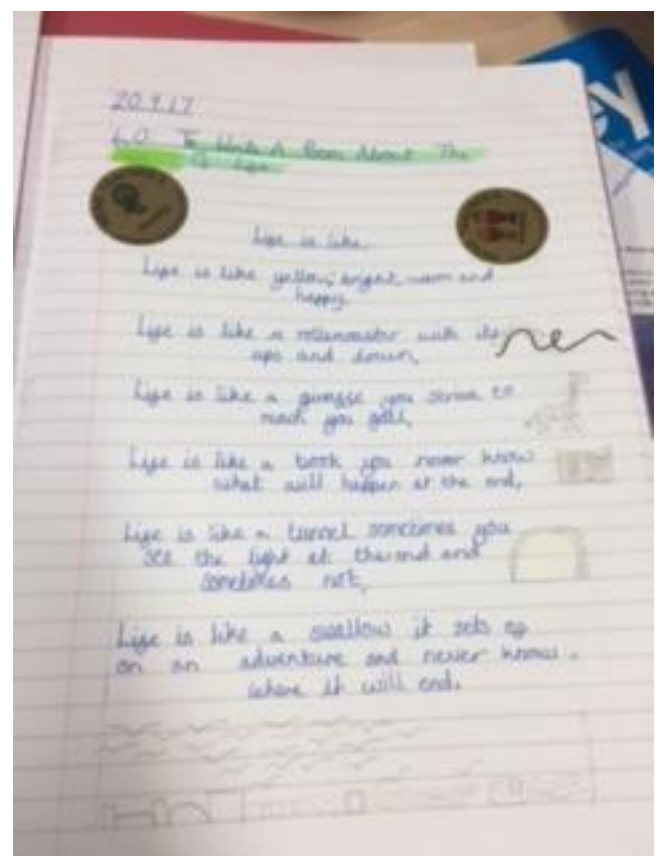 20.9.17
LO To Write A Poem About The
Of Life
Life is like
Life is like yellow, bright, warm and
happy.
Life is like a rollercoaster with its
ups and down.
Life is like a giraffe you strive to
reach you goal.
Life is like a book you never know
what will happen at the end.
Life is like a tunnel sometimes you
see the light at the end and
sometimes not.
Life is like a swallow it sets of
on an adventure and never know
where it will end.